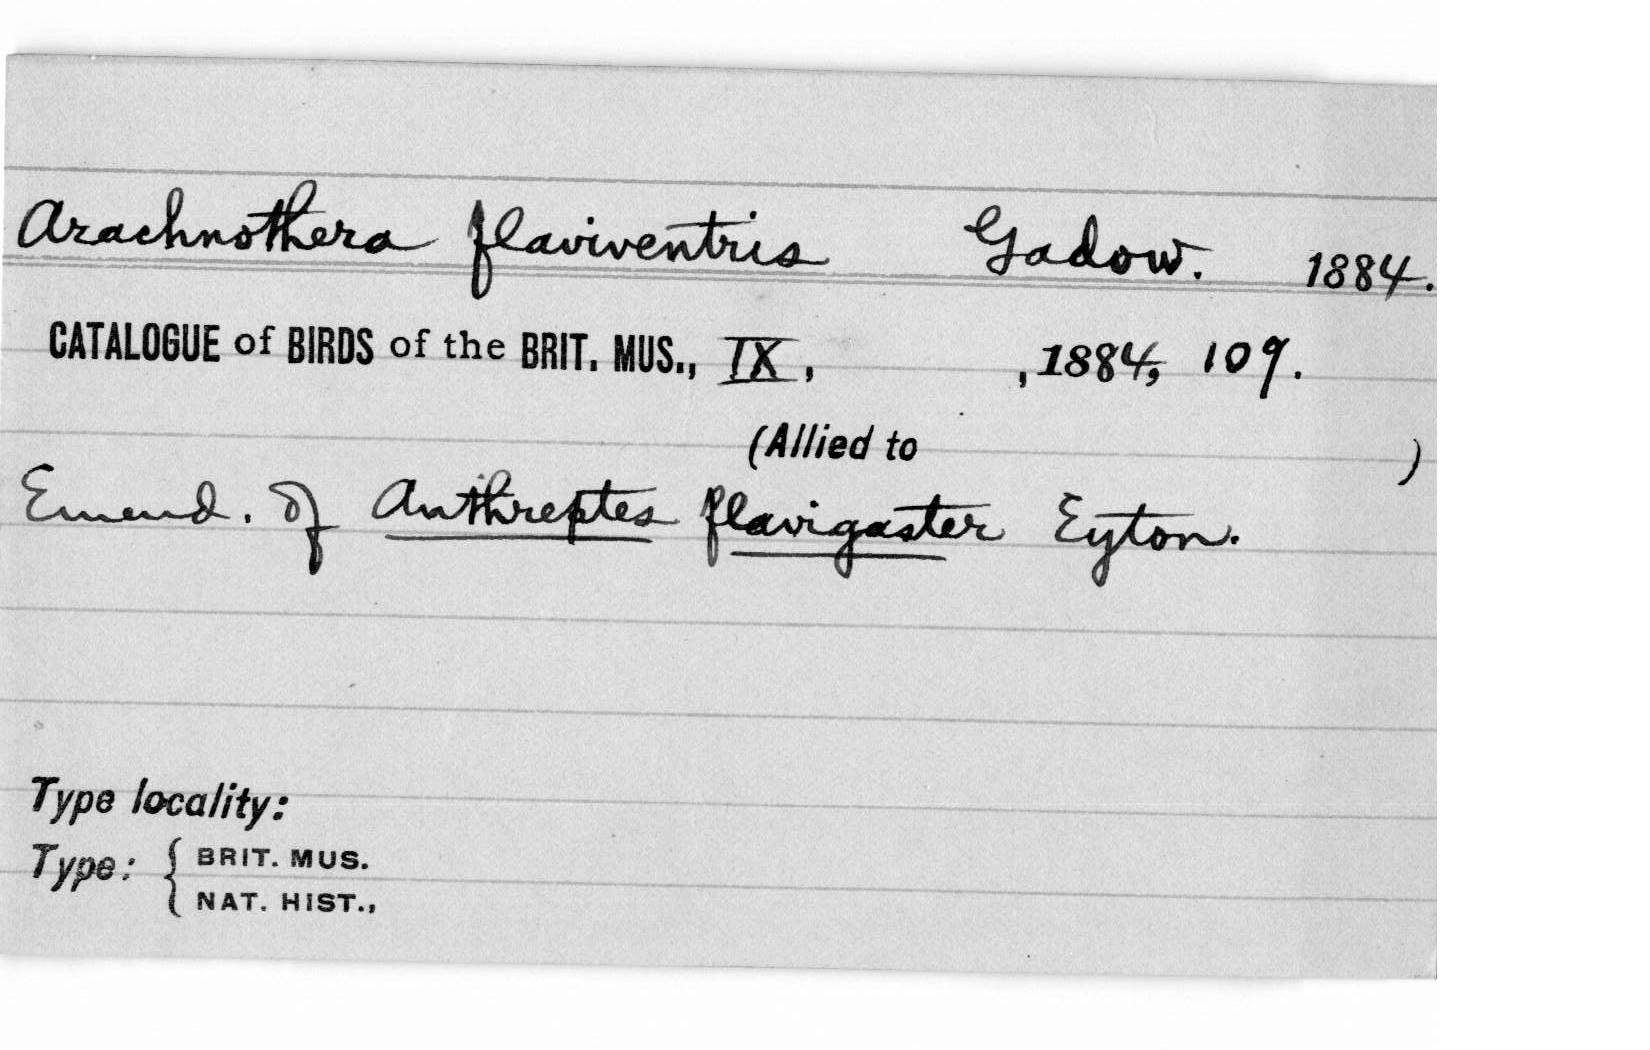 Arachnothera flaviventris Gadow. 1884.
CATALOGUE of BIRDS of the BRIT. MUS., IX, , 1884, 109.
(Allied to )
Emend. of Anthreptes flavigaster Eyton.
Type locality:
Type: { BRIT. MUS.
NAT. HIST.,